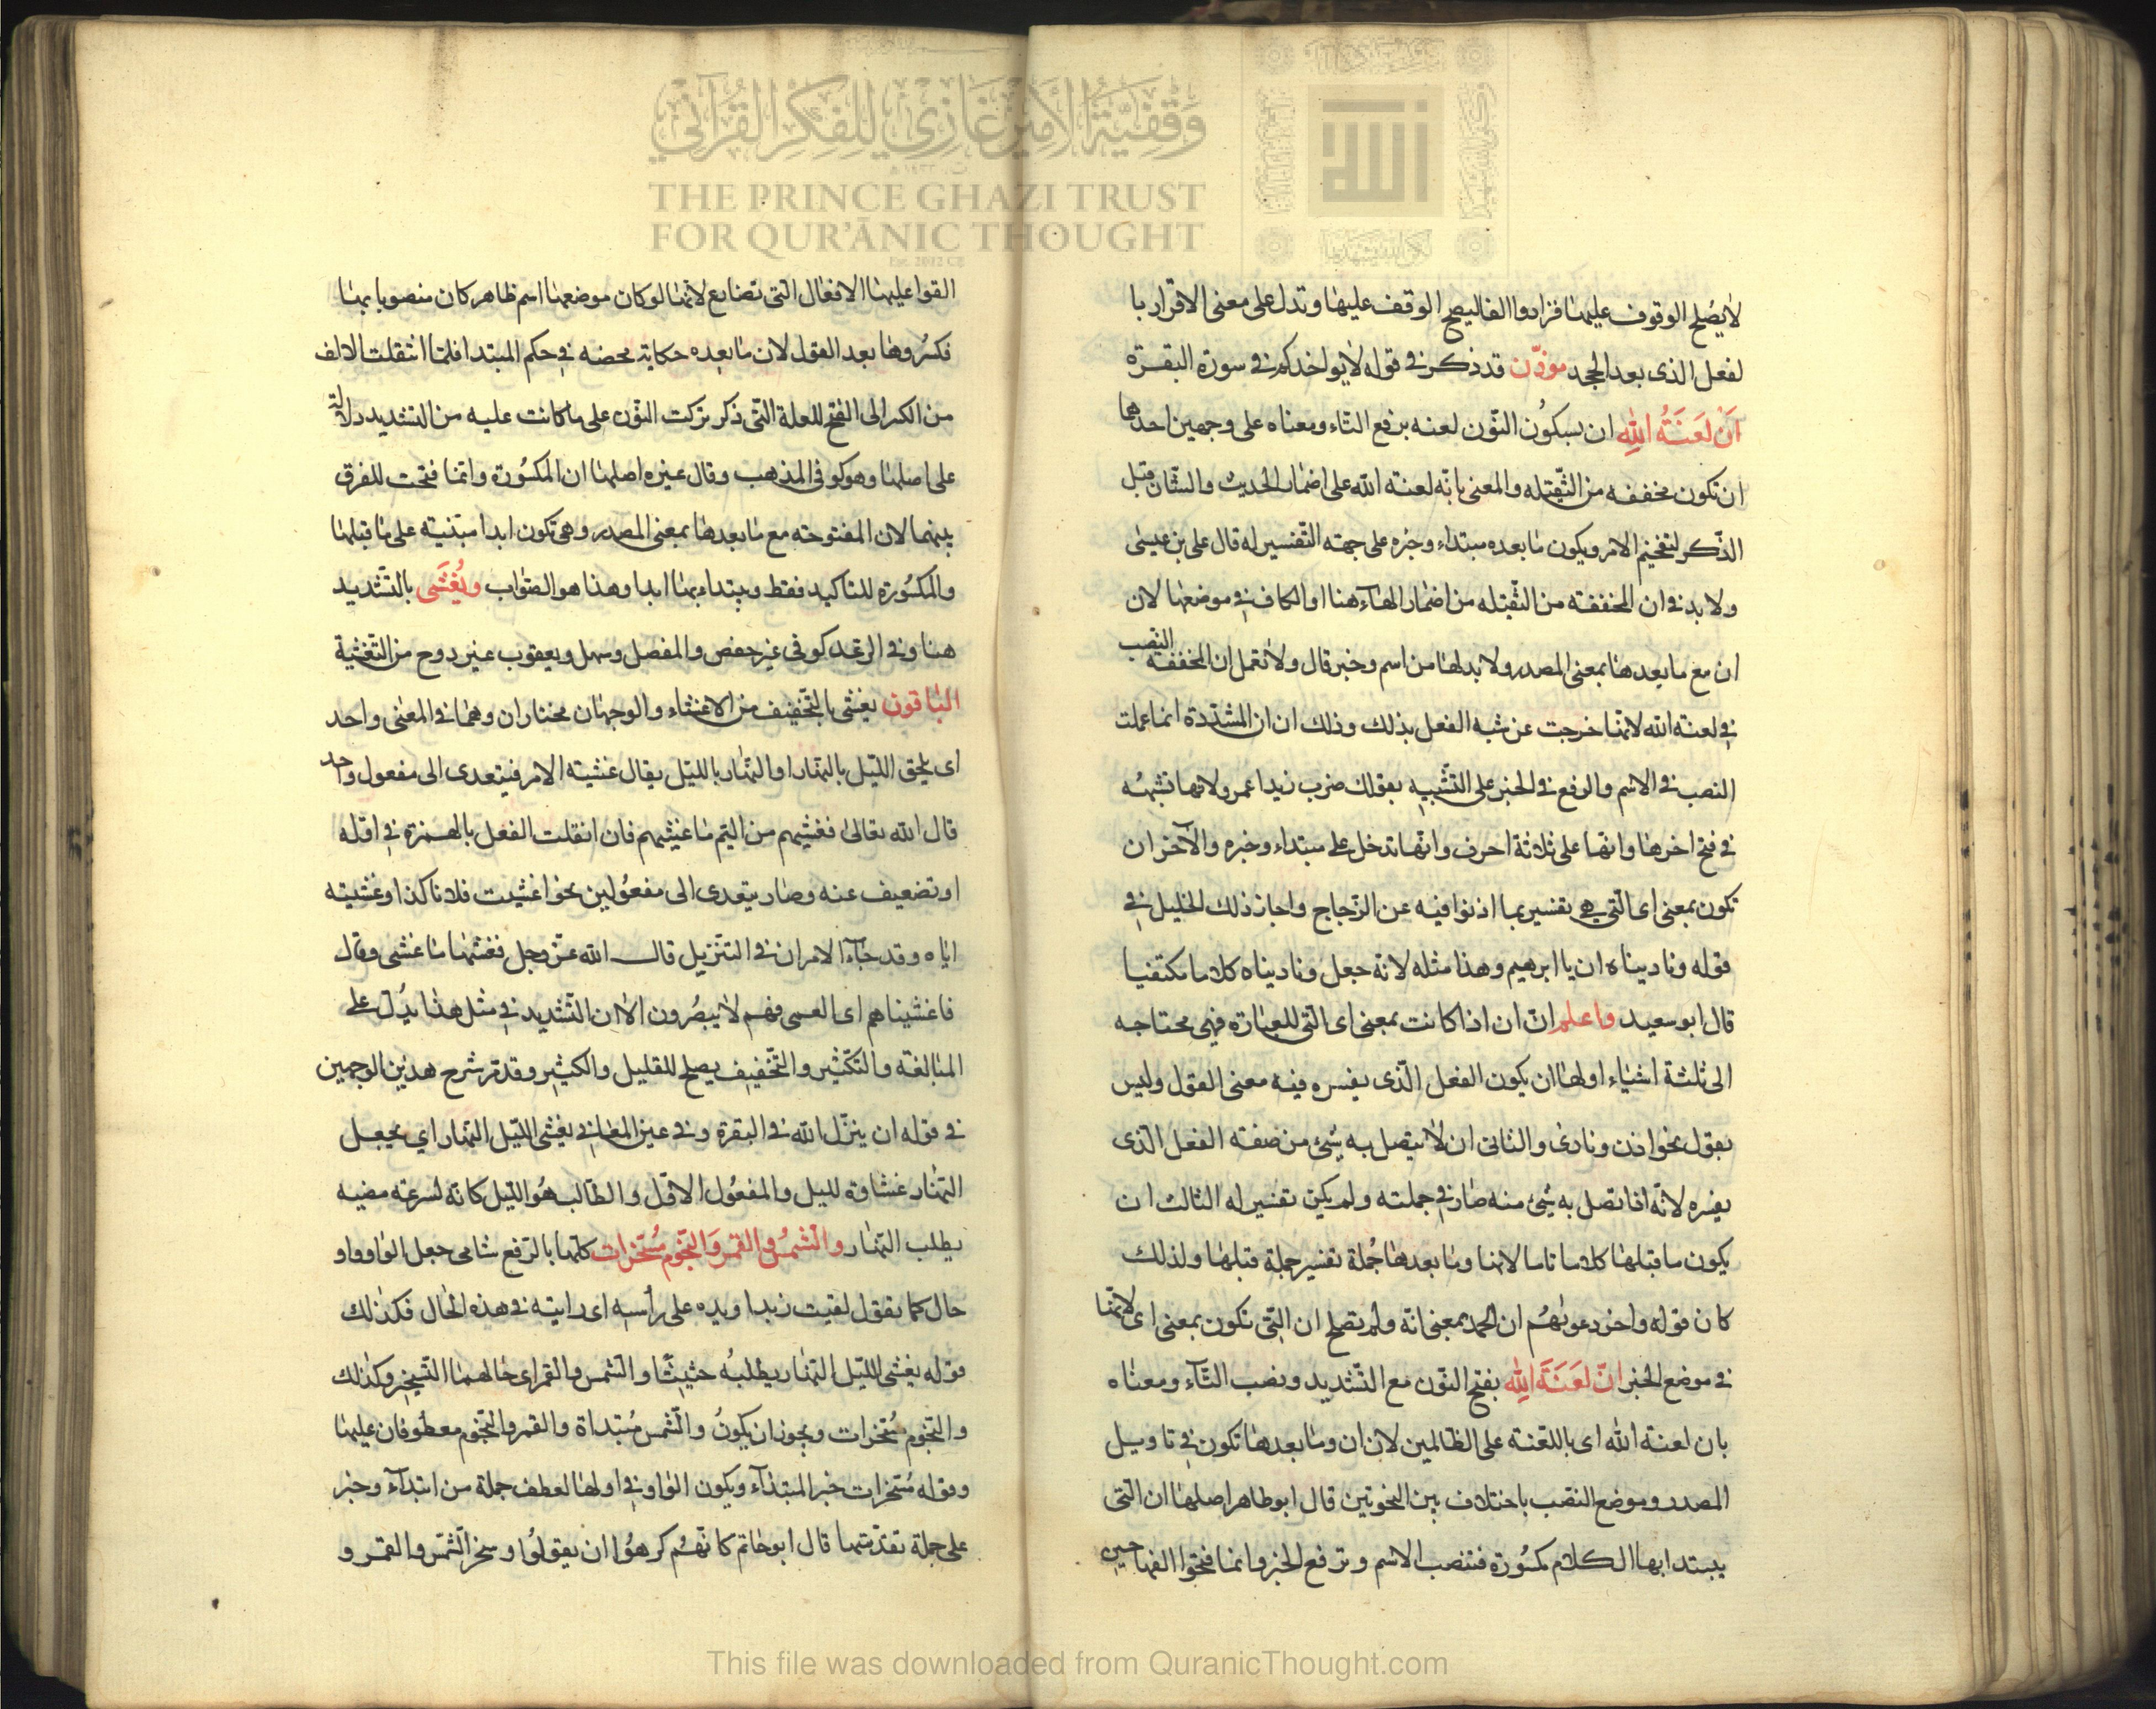 لايصلح الوقوف عليهنا فزادوا الفا ليصح الوقف عليها وتدل على معنى الاقرار با
لفعل الذى بعد الجحد موذّن قد ذكر في قوله لايواخذكم في سورة البقرة
اَنْ لَعَنَتُ اللهِ ان بسكون النّون لعنه برفع التاء ومعناه على وجهين احدهما
ان تكون مخففه من الثّقيله والمعنى بانّه لعنة الله على اضمار الحديث والشّان قبل
الذّكر لتفخيم الامر ويكون ما بعده مبتداء وخبره على جهته التّفسير له قال على بن عيسى
ولا بد في ان المخففته من الثّقيله من اضمار الهآء هنا او الكاف في موضعها لان
ان مع ما بعدها بمعنى المصدر ولا بد لها من اسم وخبر قال ولا تعمل ان المخففة النصب
في لعنة الله لانها خرجت عن شبه الفعل بذلك وذلك ان ان المشدّدة انما عملت
النصب في الاسم والرفع في الخبر على التّشبيه بقولك ضرب زيدا عمرو لانها تشبهُه
في فتح اخرها وانها على ثلاثة احرف وانها تدخل على مبتداء وخبره والآخر ان
تكون بمعنى اى التّى هى تفسير بما اذنوا فيه عن الزّجاج واجاز ذلك الخليل في
قوله وناديناه ان يا ابرهيم وهذا مثله لانه جعل وناديناه كلاما مكتفيا
قال ابو سعيد واعلم انّ ان اذا كانت بمعنى اى التّى للعبارة فهى محتاجه
الى ثلثة اشياء اولها ان يكون الفعل الّذى يفسره فيه معنى القول وليس
بقول نحو اذن ونادى والثانى ان لا يتصل به شئ من صفته الفعل الّذى
يفسره لانّه اذا تصل به شئ منه صار في جملته ولم يكن تفسير له الثالث ان
يكون ما قبلها كلاما تاما لانها وما بعدها جُملة تفسير جملة قبلها ولذلك
كان قوله واخر دعويٰهُم ان الحمد بمعنى انّه ولم تصلح ان الّتى تكون بمعنى اى لانّها
في موضع الخبر انّ لَعَنَةَ اللهِ بفتح النّون مع التّشديد ونصب التّاء ومعناه
بان لعنة الله اى باللعنة على الظالمين لان ان وما بعدها تكون في تاويل
المصدر وموضع النصب باختلاف بين النحوتين قال ابو طاهر اصلها ان التّى
يبتدا بها الكلام مكسُورة فتنصب الاسم وترفع الخبر وانما فتحوا الفها حين
القوا عليهنا الافعال الّتى تضارع لانّها لو كان موضعها اسم ظاهر كان منصوبا بها
فكسُروها بعد القول لان ما بعده حكاية محضه في حكم المبتدا فلمّا انتقلت الالف
من الكسر الى الفتح للعلة التّى ذكر تركت النّون على ما كانت عليه من التشديد دلالة
على اصلها وهو كوفى المذهب وقال غيره اصلها ان المكسُورة وانما فتحت للفرق
بينهما لان المفتوحته مع ما بعدها بمعنى المصدر وهى تكون ابدا مبنية على ما قبلها
والمكسُورة للتاكيد فقط ويبتداء بها ابدا وهذا هو الصّواب ويُغَشّى بالتّشديد
هنا وفي الرّعد كوفى غير حفص والمفضل وسهل ويعقوب غير روح من التّغشية
الباقون يغشى بالتّخفيف من الاغشاء والوجهان مختاران وهما في المعنى واحد
اى يلحق اللّيل بالنّهار او النّهار بالليل يقال غشيته الامر فيتعدى الى مفعول واحد
قال الله تعالىٰ فغشيهم من اليم ما غشيهم فان انقلت الفعل بالهمزة في اوّله
او تضعيف عنه وصار يتعدى الى مفعُولين نحو اغشيت فلانا كذا وغشيته
ايّاه وقد جآء الامران في التنزيل قال الله عزّ وجل فغشّها ما غشى وقال
فاغشيناهم اى العمى فهم لا يبصُرون الا ان التّشديد في مثل هذا يدُل على
المبالغة والتّكثير والتّخفيف يصلح للقليل والكثير وقد مّر شرح هذين الوجهين
في قوله ان ينزّل الله في البقرة وفي عين المعانى يغشى اللّيل النّهار اي يجعل
النّهار غشاوة لليل والمفعُول الاوّل والطّالب هُو اللّيل كانّه لسرعة مضيه
يطلب النّهار والشّمسُ والقمرَ والنّجُوم مُسَخّرات كلّها بالرّفع شامى جعل الواو واو
حال كما تقول لقيت زيدا ويده على رأسه اى رايته في هذه الحال فكذلك
قوله يغشى اللّيل النّهار يطلبُه حثيثًا والشّمس والقمر اى حالهما التّسخير وكذلك
والنّجُوم مُسَخرات ويجوز ان يكونُ والشّمس مُبتداة والقمر والنّجُوم معطُوفان عليها
وقوله مُسَخرات خبر المبتدآء ويكون الواو في اولها لعطف جملة من ابتدآء وخبر
على جملة تقدّمتها قال ابو حاتم كانّهُم كرهُوا ان يقولُوا وسخر الشّمس والقمر و
وقفية الأمير غازي للفكر القرآني
THE PRINCE GHAZI TRUST
FOR QUR'ĀNIC THOUGHT
Est. 2012 CE
This file was downloaded from QuranicThought.com